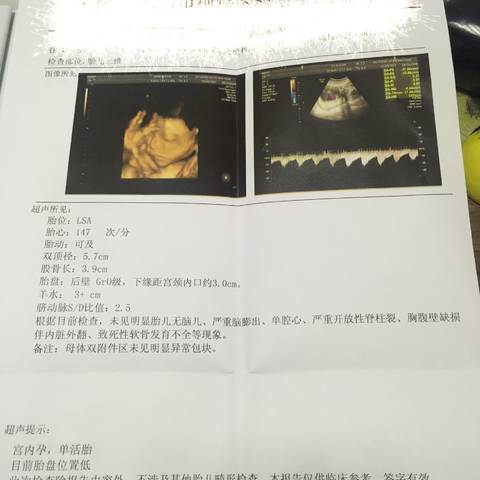 检查部位:胎儿三维
图像所见
超声所见:
胎位:LSA
胎心:147 次/分
胎动:可及
双顶径:5.7cm
股骨长:3.9cm
胎盘:后壁 Gr0级,下缘距宫颈内口约3.0cm。
羊水: 3+ cm
脐动脉S/D比值:2.5
根据目前检查,未见明显胎儿无脑儿、严重脑膨出、单腔心、严重开放性脊柱裂、胸腹壁缺损
伴内脏外翻、致死性软骨发育不全等现象。
备注:母体双附件区未见明显异常包块。
超声提示:
宫内孕,单活胎
目前胎盘位置低
此次检查除报告内容外,不涉及其他胎儿畸形检查,本报告仅供临床参考,签字有效